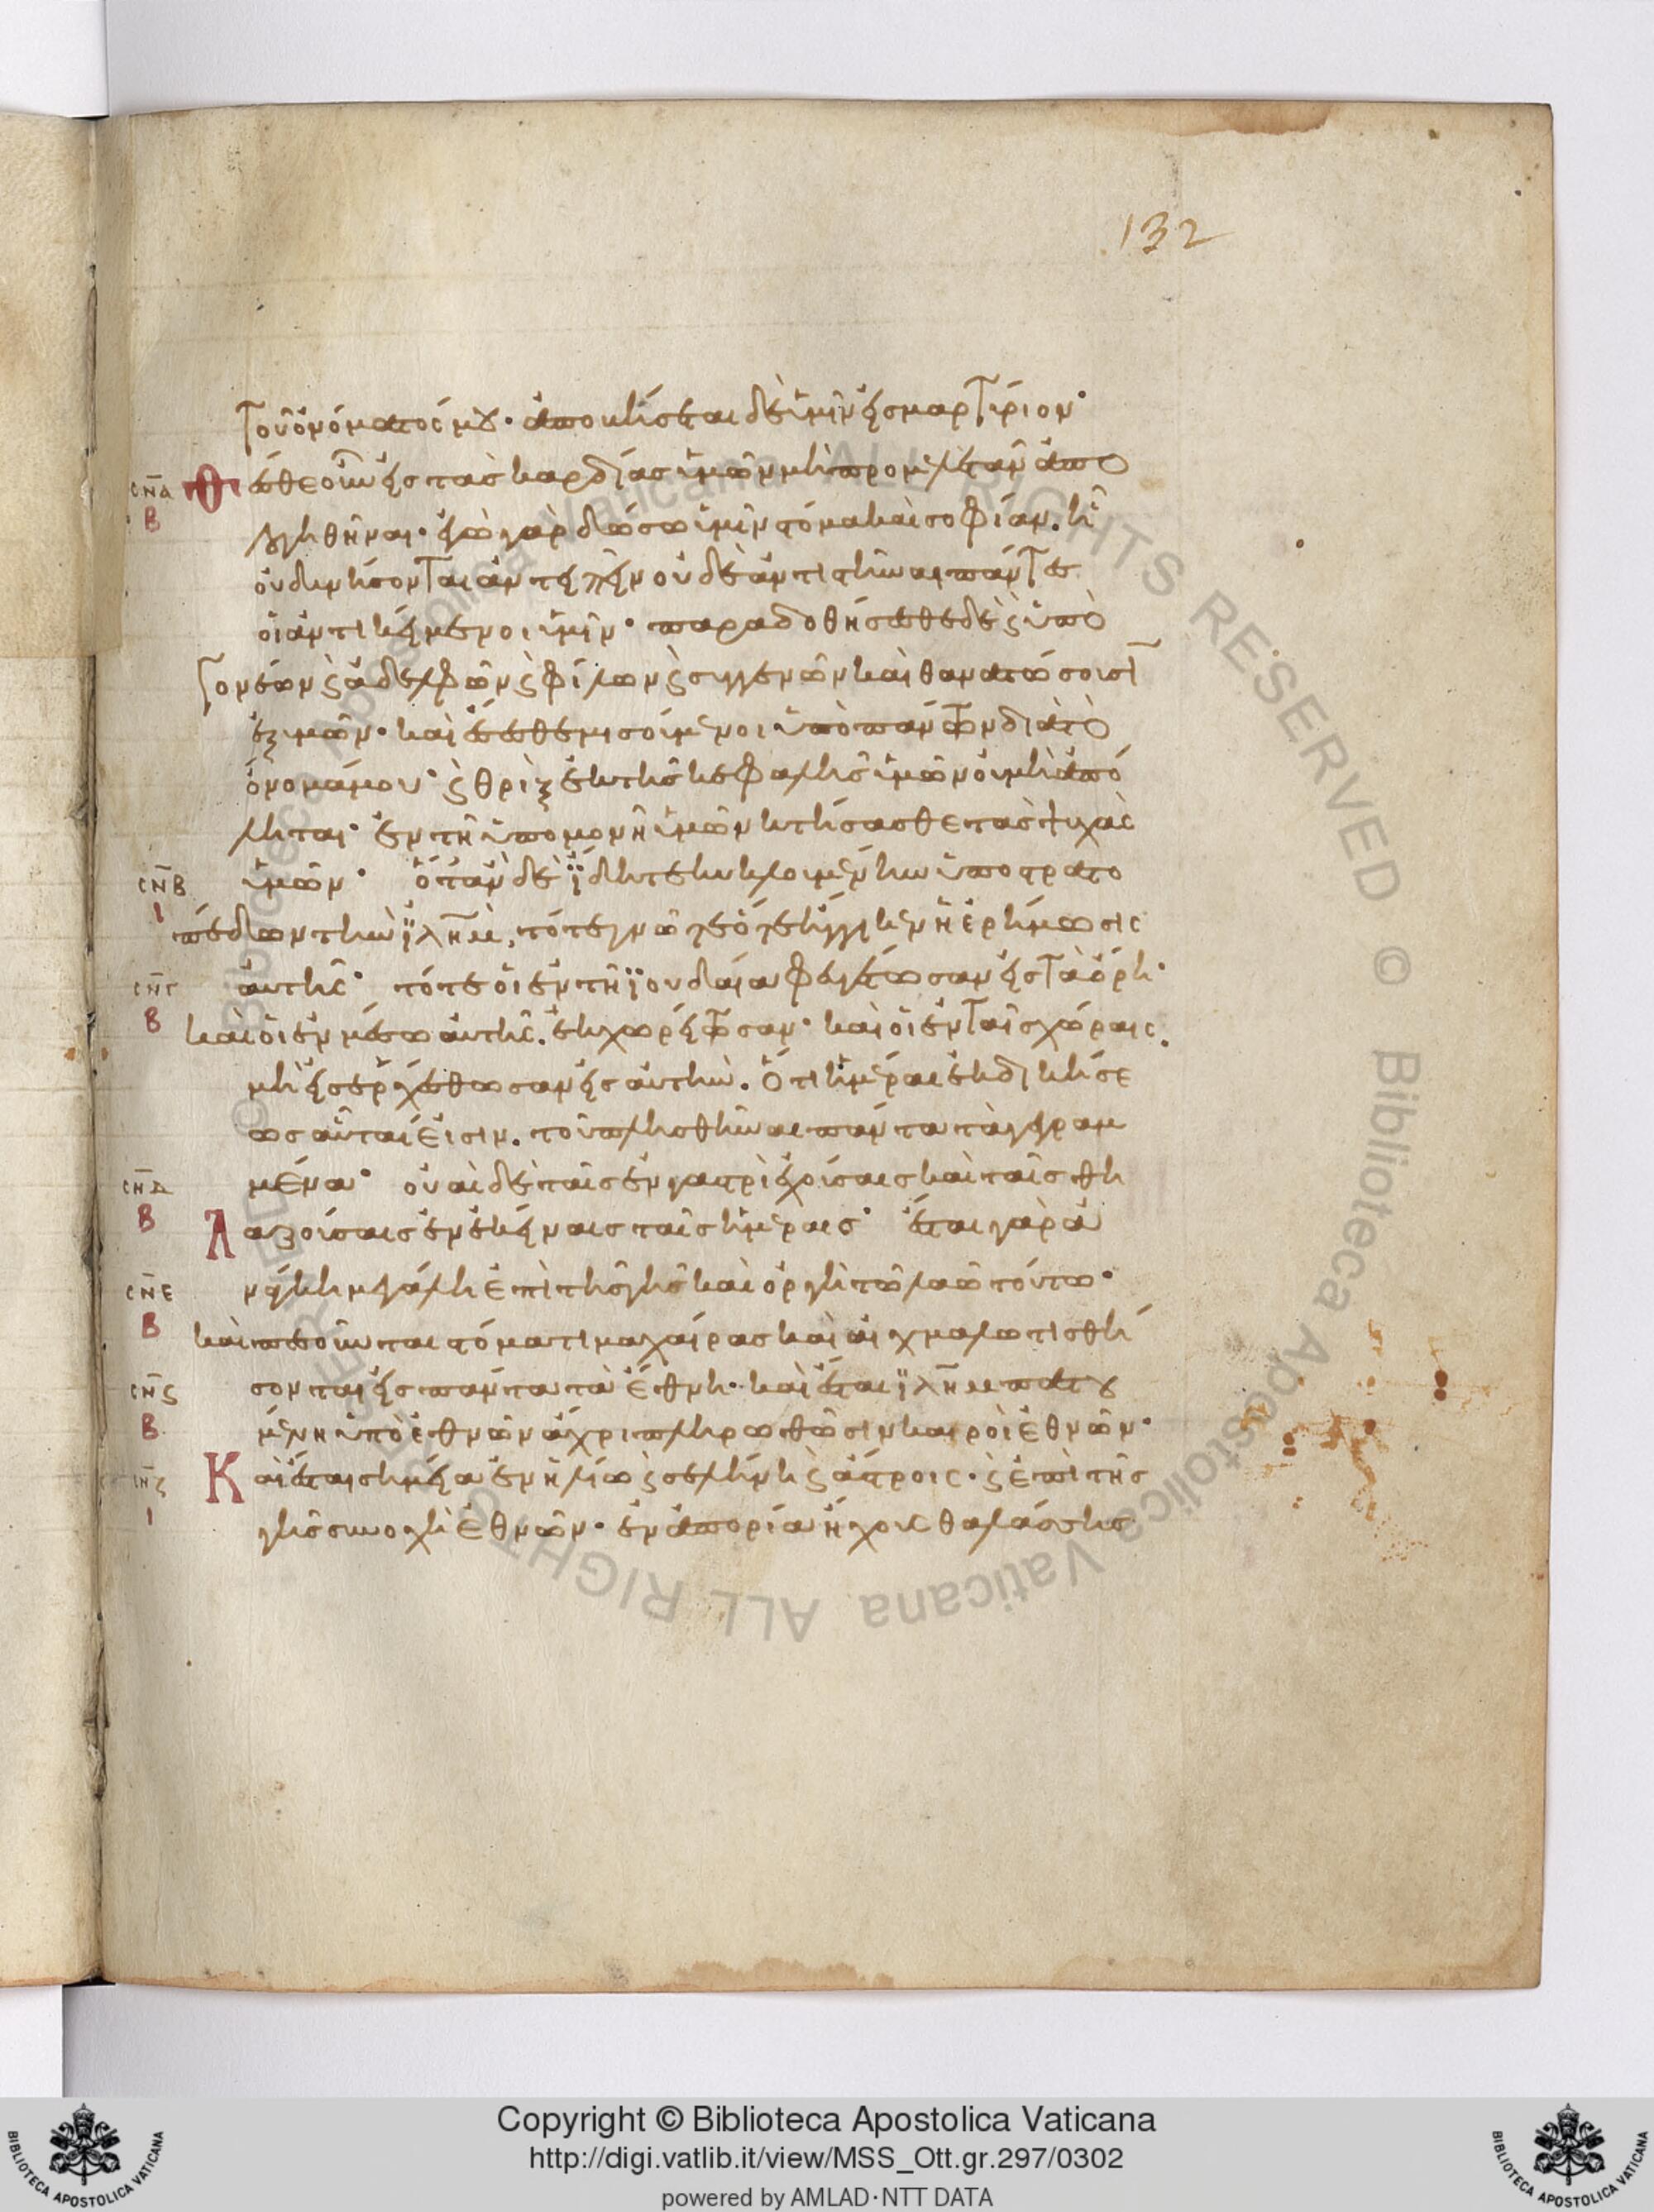 132
τοῦ ὀνόματός μου· ἀποβήσεται δὲ ὑμῖν εἰς μαρτύριον·
θέσθε οὖν εἰς τὰς καρδίας ὑμῶν μὴ προμελετᾶν ἀπο
λογηθῆναι· ἐγὼ γὰρ δώσω ὑμῖν στόμα καὶ σοφίαν. ᾗ
οὐ δυνήσονται ἀντειπεῖν οὐδὲ ἀντιστῆναι πάντες
οἱ ἀντικείμενοι ὑμῖν· παραδοθήσεσθε δὲ ϗ ὑπὸ
γονέων ϗ ἀδελφῶν ϗ φίλων ϗ συγγενῶν καὶ θανατώσουσιν
ἐξ ὑμῶν· καὶ ἔσεσθε μισούμενοι ὑπὸ πάντων διὰ τὸ
ὄνομά μου· ϗ θρὶξ ἐκ τῆς κεφαλῆς ὑμῶν οὐ μὴ ἀπό
ληται· ἐν τῇ ὑπομονῇ ὑμῶν κτήσασθε τὰς ψυχὰς
ὑμῶν· ὅταν δὲ ἴδητε κυκλουμένην ὑπὸ στρατο
πέδων τὴν ϊλημ, τότε γνῶτε ὅτι ἤγγικεν ἡ ἐρήμωσις
αὐτῆς· τότε οἱ ἐν τῇ ϊουδαίᾳ φευγέτωσαν εἰς τὰ ὄρη·
καὶ οἱ ἐν μέσῳ αὐτῆς. ἐκχωρείτωσαν· καὶ οἱ ἐν ταῖς χώραις.
μὴ εἰσερχέσθωσαν εἰς αὐτήν. ὅτι ἡμέραι ἐκδικήσε
ως αὗταί εἰσιν. τοῦ πλησθῆναι πάντα τὰ γεγραμ
μένα· οὐαὶ δὲ ταῖς ἐν γαστρὶ ἐχούσαις καὶ ταῖς θη
λαζούσαις ἐν ἐκείναις ταῖς ἡμέραις· ἔσται γὰρ ἀ
νάγκη μεγάλη ἐπὶ τῆς γῆς καὶ ὀργὴ τῷ λαῷ τούτῳ·
καὶ πεσοῦνται στόματι μαχαίρας καὶ αἰχμαλωτισθή
σονται εἰς πάντα τὰ ἔθνη· καὶ ἔσται ϊλημ πατου
μένη ὑπὸ ἐθνῶν ἄχρι πληρωθῶσιν καιροὶ ἐθνῶν·
Καὶ ἔσται σημεῖα ἐν ἡλίῳ ϗ σελήνῃ ϗ ἄστροις· ϗ ἐπὶ τῆς
γῆς συνοχὴ ἐθνῶν· ἐν ἀπορίᾳ ἤχους θαλάσσης
ϹΝΒ
Ι
ϹΝΓ
Β
ϹΝΔ
Β
ϹΝΕ
Β
ϹΝϚ
Β
ϹΝΖ
Ι
Copyright © Biblioteca Apostolica Vaticana
http://digi.vatlib.it/view/MSS_Ott.gr.297/0302
powered by AMLAD·NTT DATA
BIBLIOTECA APOSTOLICA VATICANA
BIBLIOTECA APOSTOLICA VATICANA